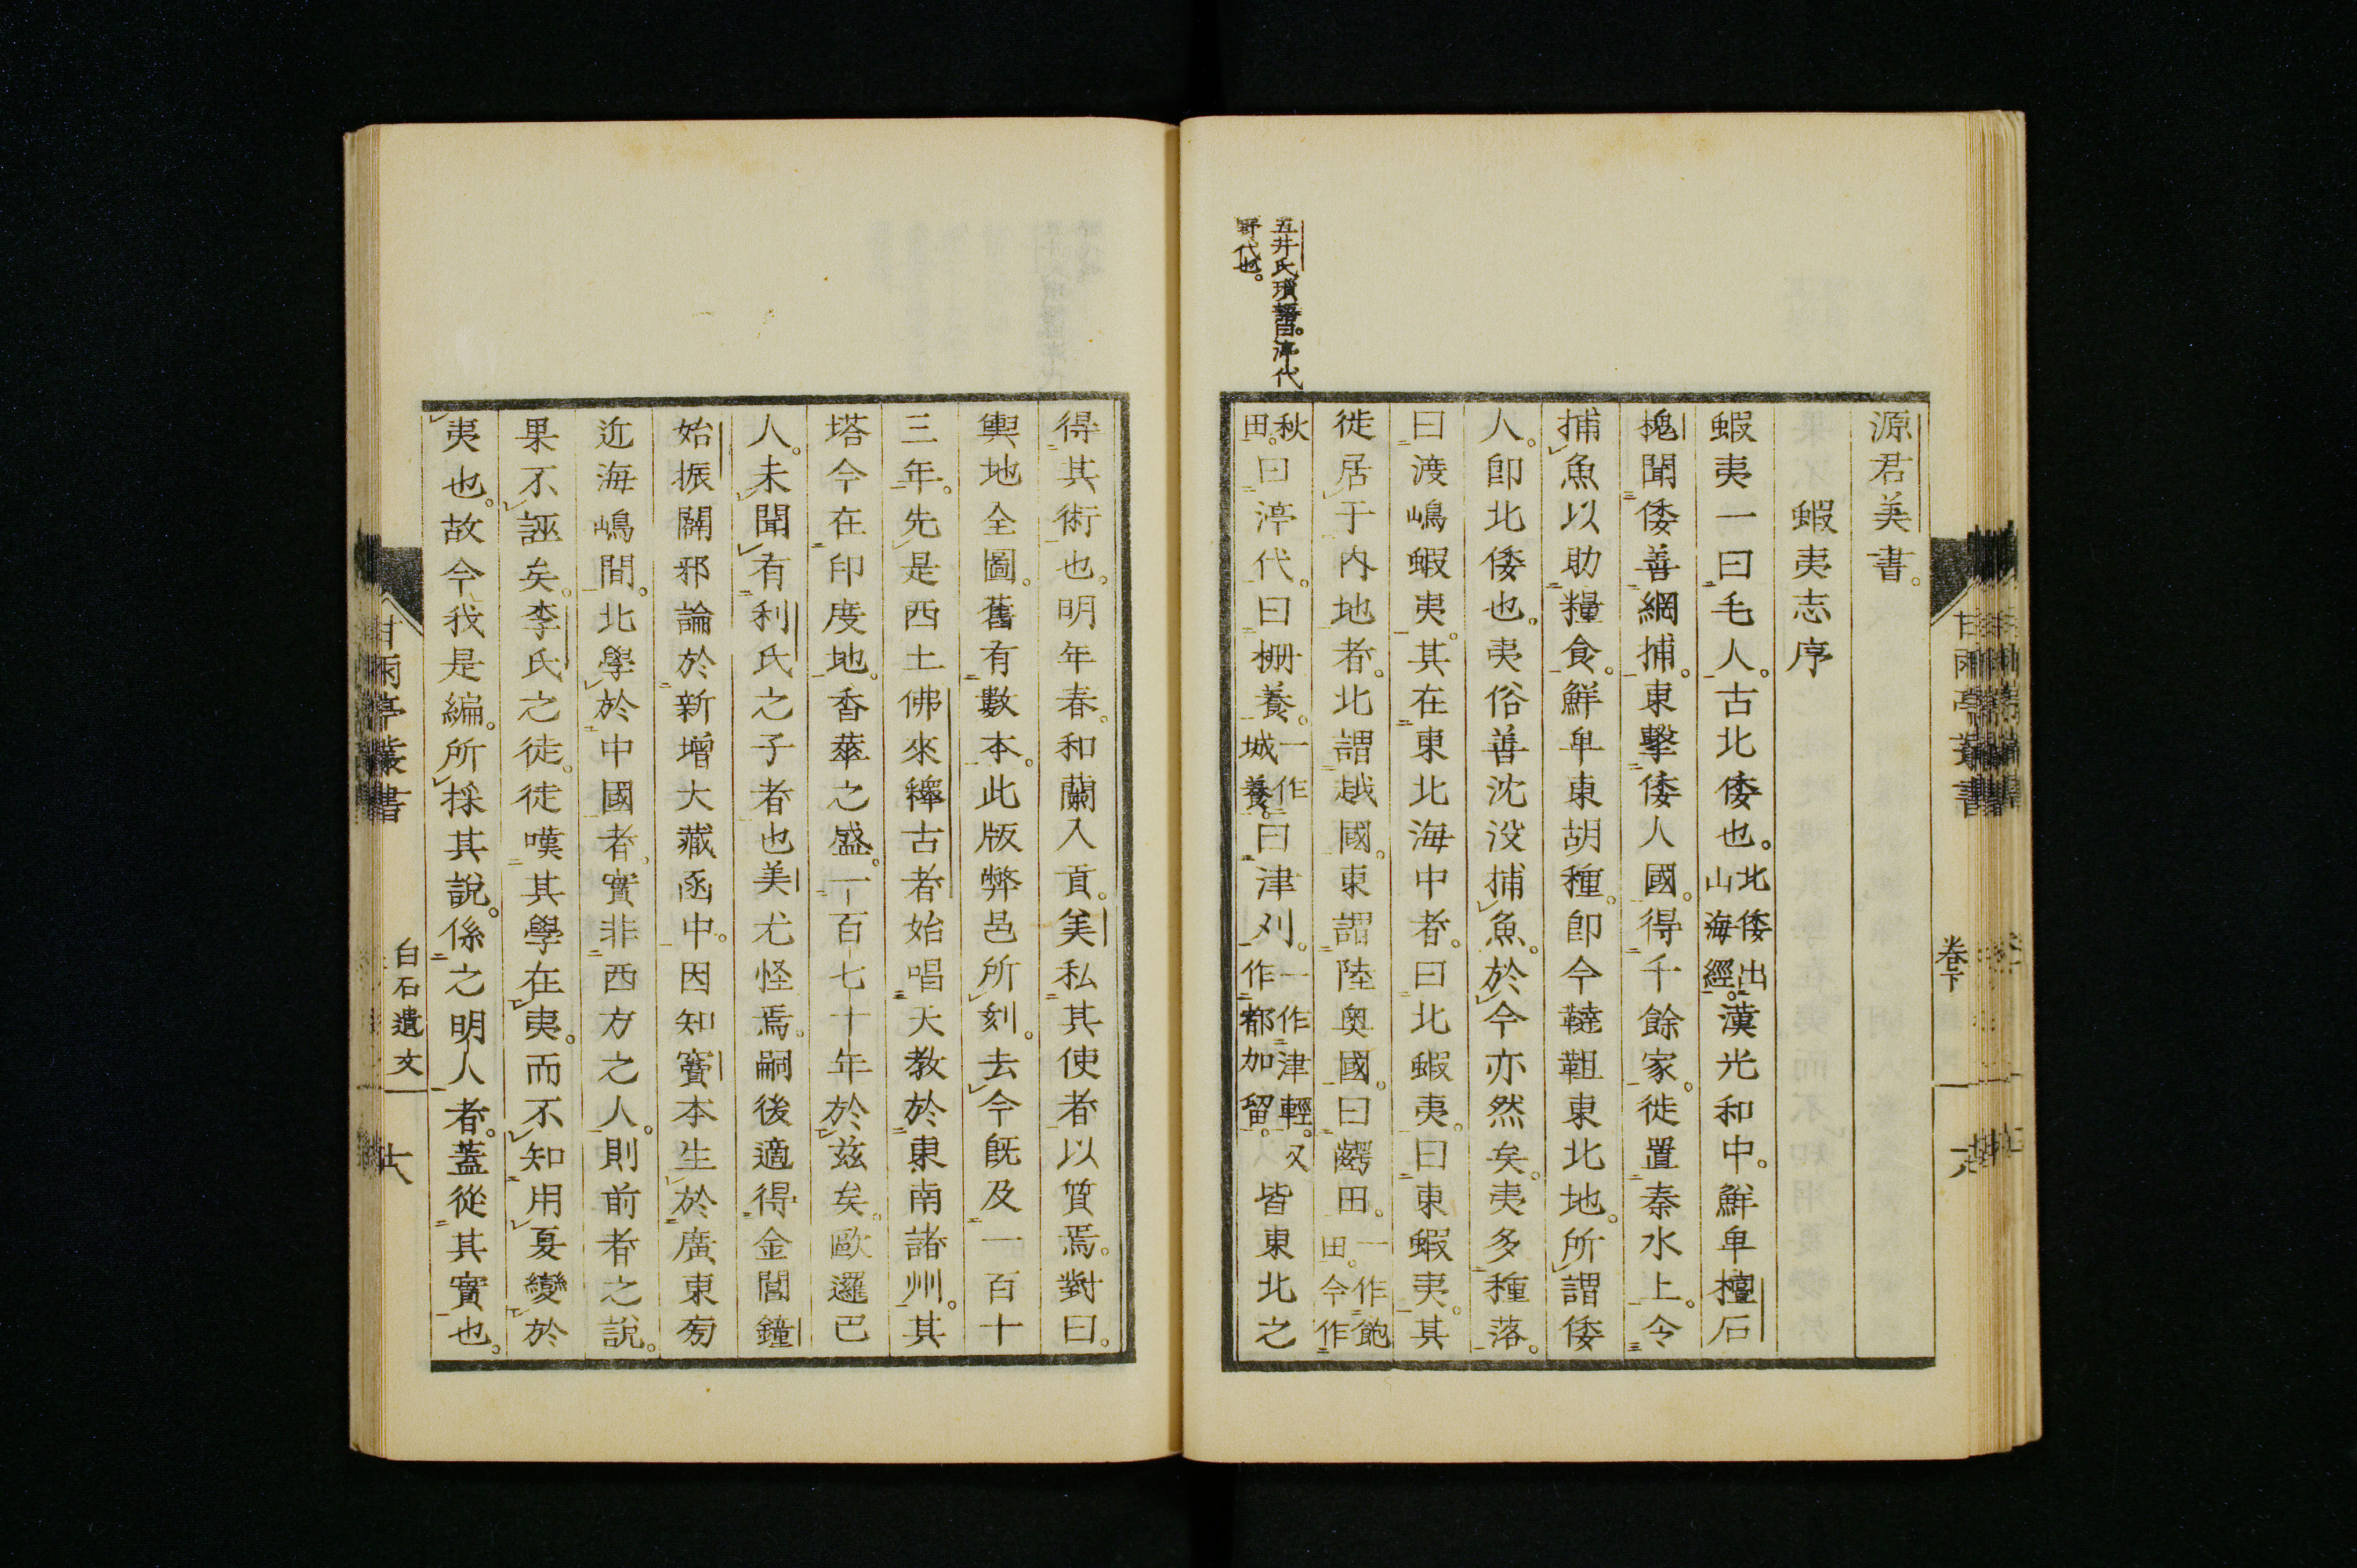 五井氏瑣語曰。渟代
野代也。
源君美書。
蝦夷志序
蝦夷一曰毛人。古北倭也。北倭出山海經。漢光和中。鮮卑檀石
槐聞倭善網捕。東擊倭人國。得千餘家。徙置秦水上。令
捕魚以助糧食。鮮卑東胡種。卽今韃靼東北地。所謂倭
人。卽北倭也。夷俗善沈沒捕魚。於今亦然矣。夷多種落。
曰渡嶋蝦夷。其在東北海中者。曰北蝦夷。曰東蝦夷。其
徙居于內地者。北謂越國。東謂陸奧國。曰齶田。一作飽田。今作
秋田。曰渟代。曰柵養。一作城養。曰津刈。一作津輕。又作都加留。皆東北之
甘雨亭叢書
卷下
得其術也。明年春。和蘭入貢。美私其使者以質焉。對曰。
輿地全圖。舊有數本。此版弊邑所刻。去今旣及一百十
三年。先是西土佛來釋古者始唱天教於東南諸州。其
塔今在印度地。香華之盛。一百七十年於茲矣。歐邏巴
人。未聞有利氏之子者也美尤怪焉。嗣後適得金閶鐘
始振闢邪論於新增大藏函中。因知竇本生於廣東匊
近海嶋間。北學於中國者。實非西方之人。則前者之說。
果不誣矣。李氏之徒。徒嘆其學在夷。而不知用夏變於
夷也。故今我是編。所採其說。係之明人者。蓋從其實也。
甘雨亭叢書
白石遺文